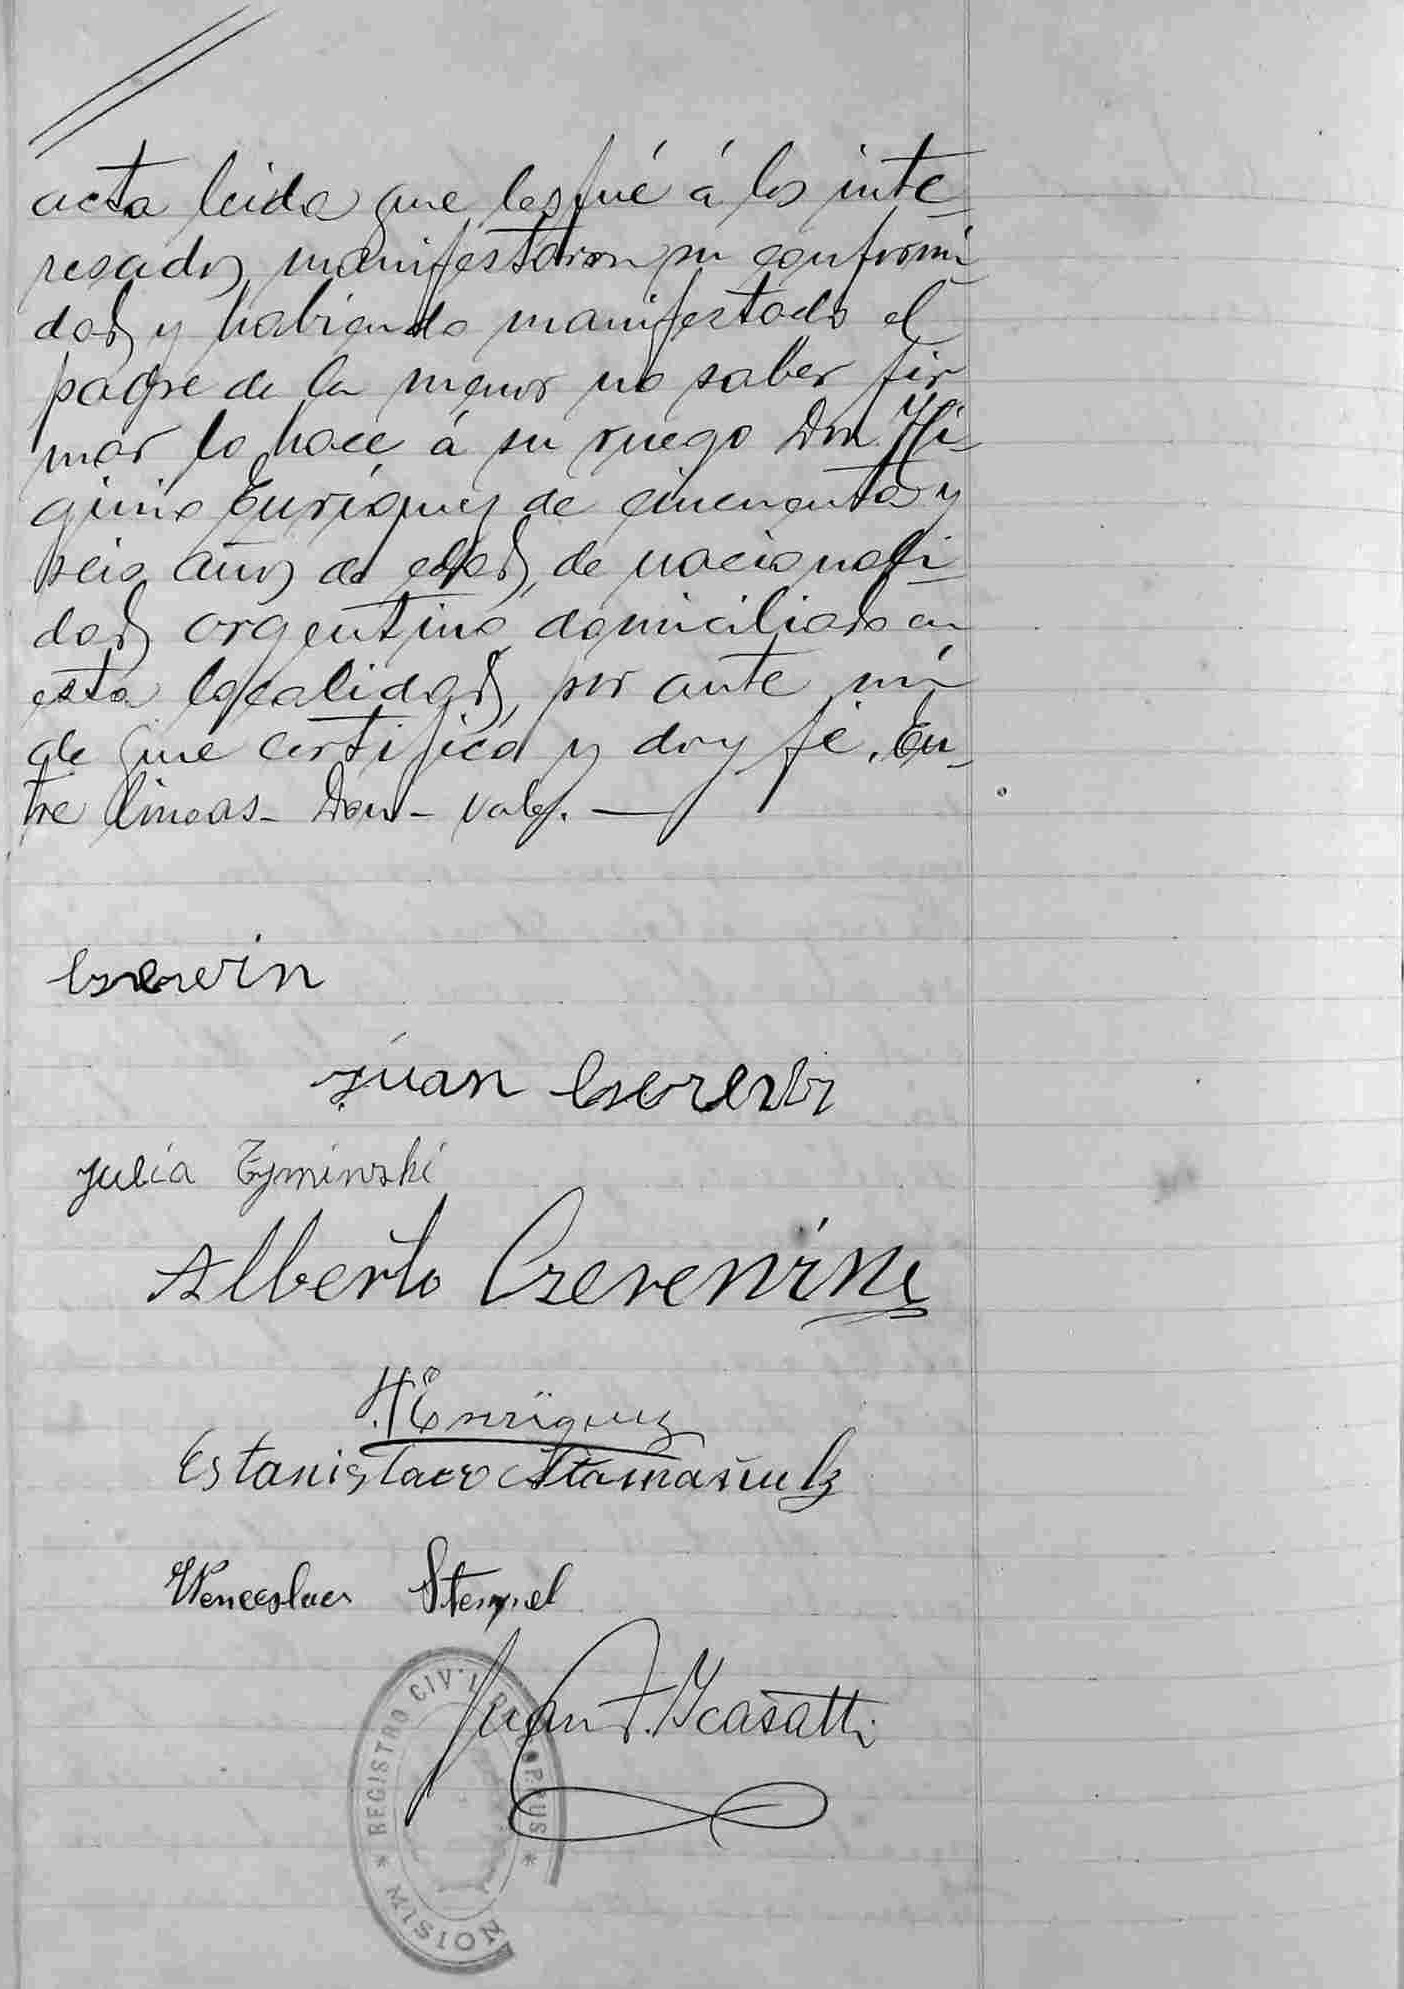 acta leida que les fué á los inte-
resados manifestaron su conformi
dad y habiendo manifestado el
padre de la menor no saber fir
mar lo hace á su ruego Don Hi-
ginio Enriquez de cincuenta y
seis años de edad, de nacionali-
dad argentino domiciliado en
esta localidad, por ante mi
de que certifico y doy fé. En-
tre lineas - Don - vale. —
Juan
Julia Zyminski
Alberto Czerevini
H Enriquez
Estanislao
Wenceslao Stempel
Juan F.
* REGISTRO CIVIL DE
* MISION